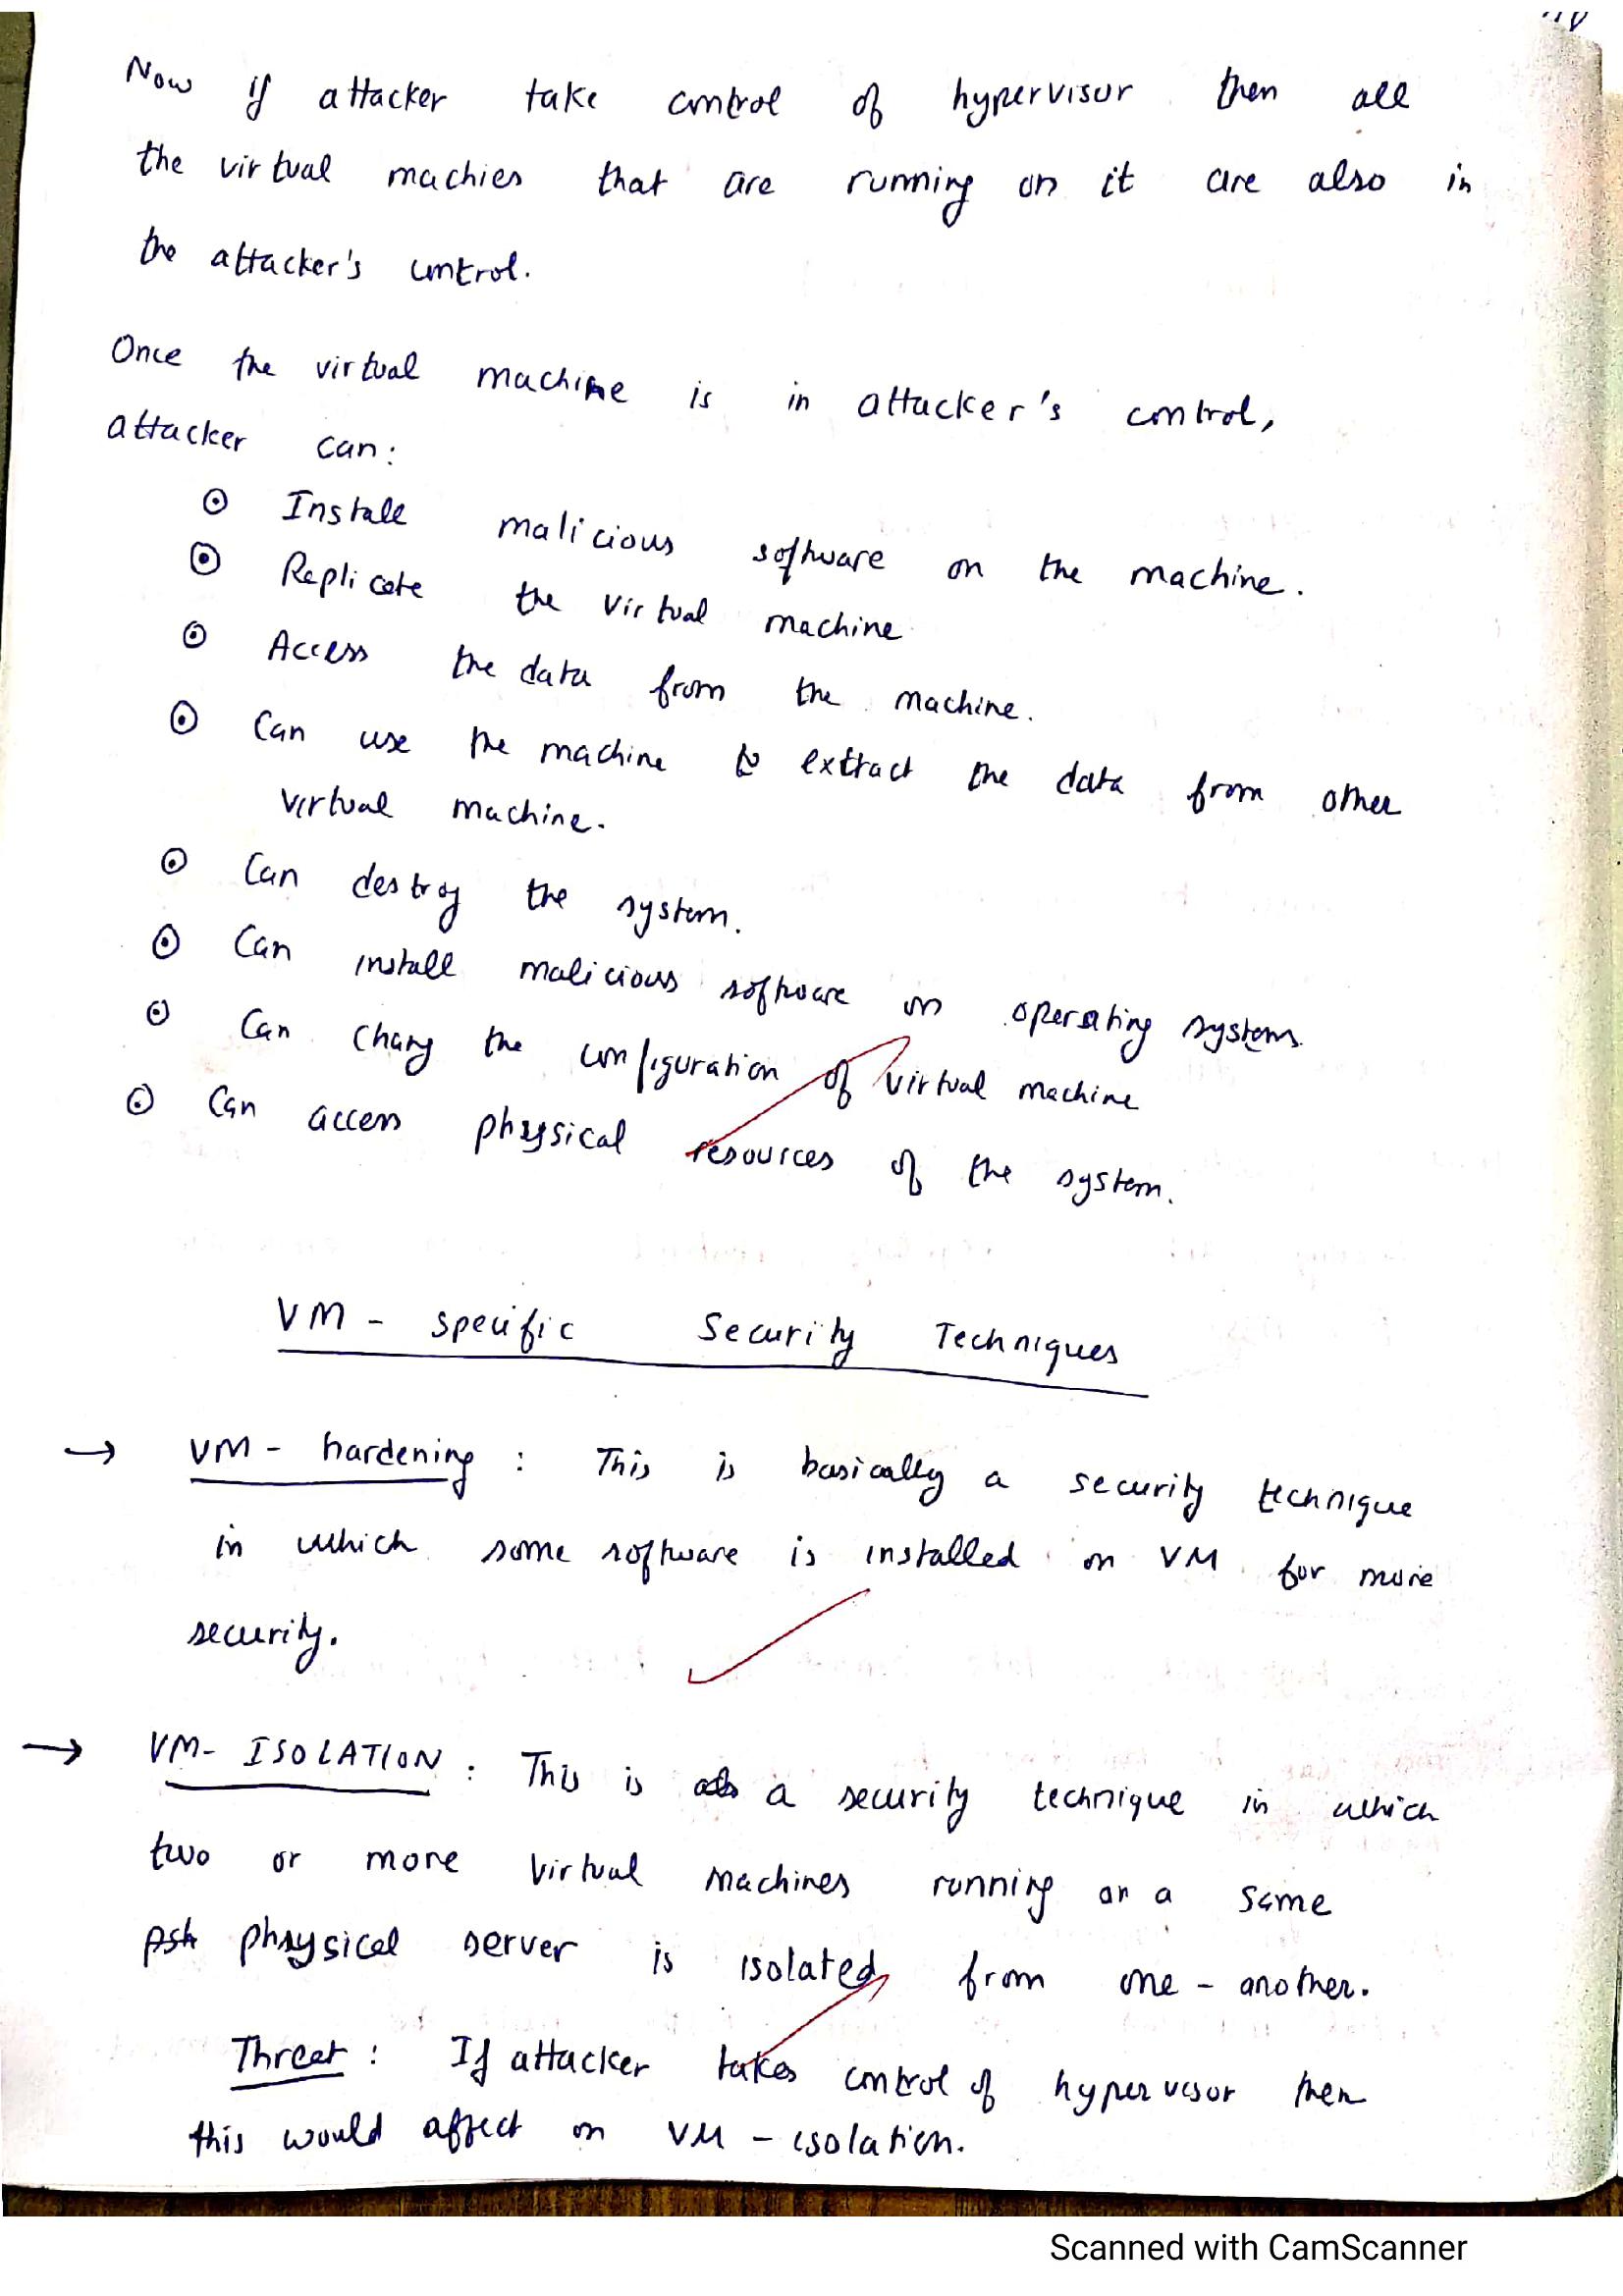 Now if attacker take control of hypervisor then all
the virtual machies that are running on it are also in
the attacker's control.
Once the virtual machine is in attacker's control,
attacker can:
⊙ Install malicious software on the machine.
⊙ Replicate the virtual machine
⊙ Access the data from the machine.
⊙ Can use the machine to extract the data from other
virtual machine.
⊙ Can destroy the system.
⊙ Can install malicious software on operating systems.
⊙ Can chang the configuration of virtual machine
⊙ Can access physical resources of the system.
VM - specific Security Techniques
→ VM - hardening : This is basically a security technique
in which some software is installed on VM for more
security.
→ VM- ISOLATION : This is a security technique in which
two or more virtual machines running on a same
physical server is isolated from one - another.
Threat : If attacker takes control of hypervisor then
this would affect on VM - isolation.
Scanned with CamScanner